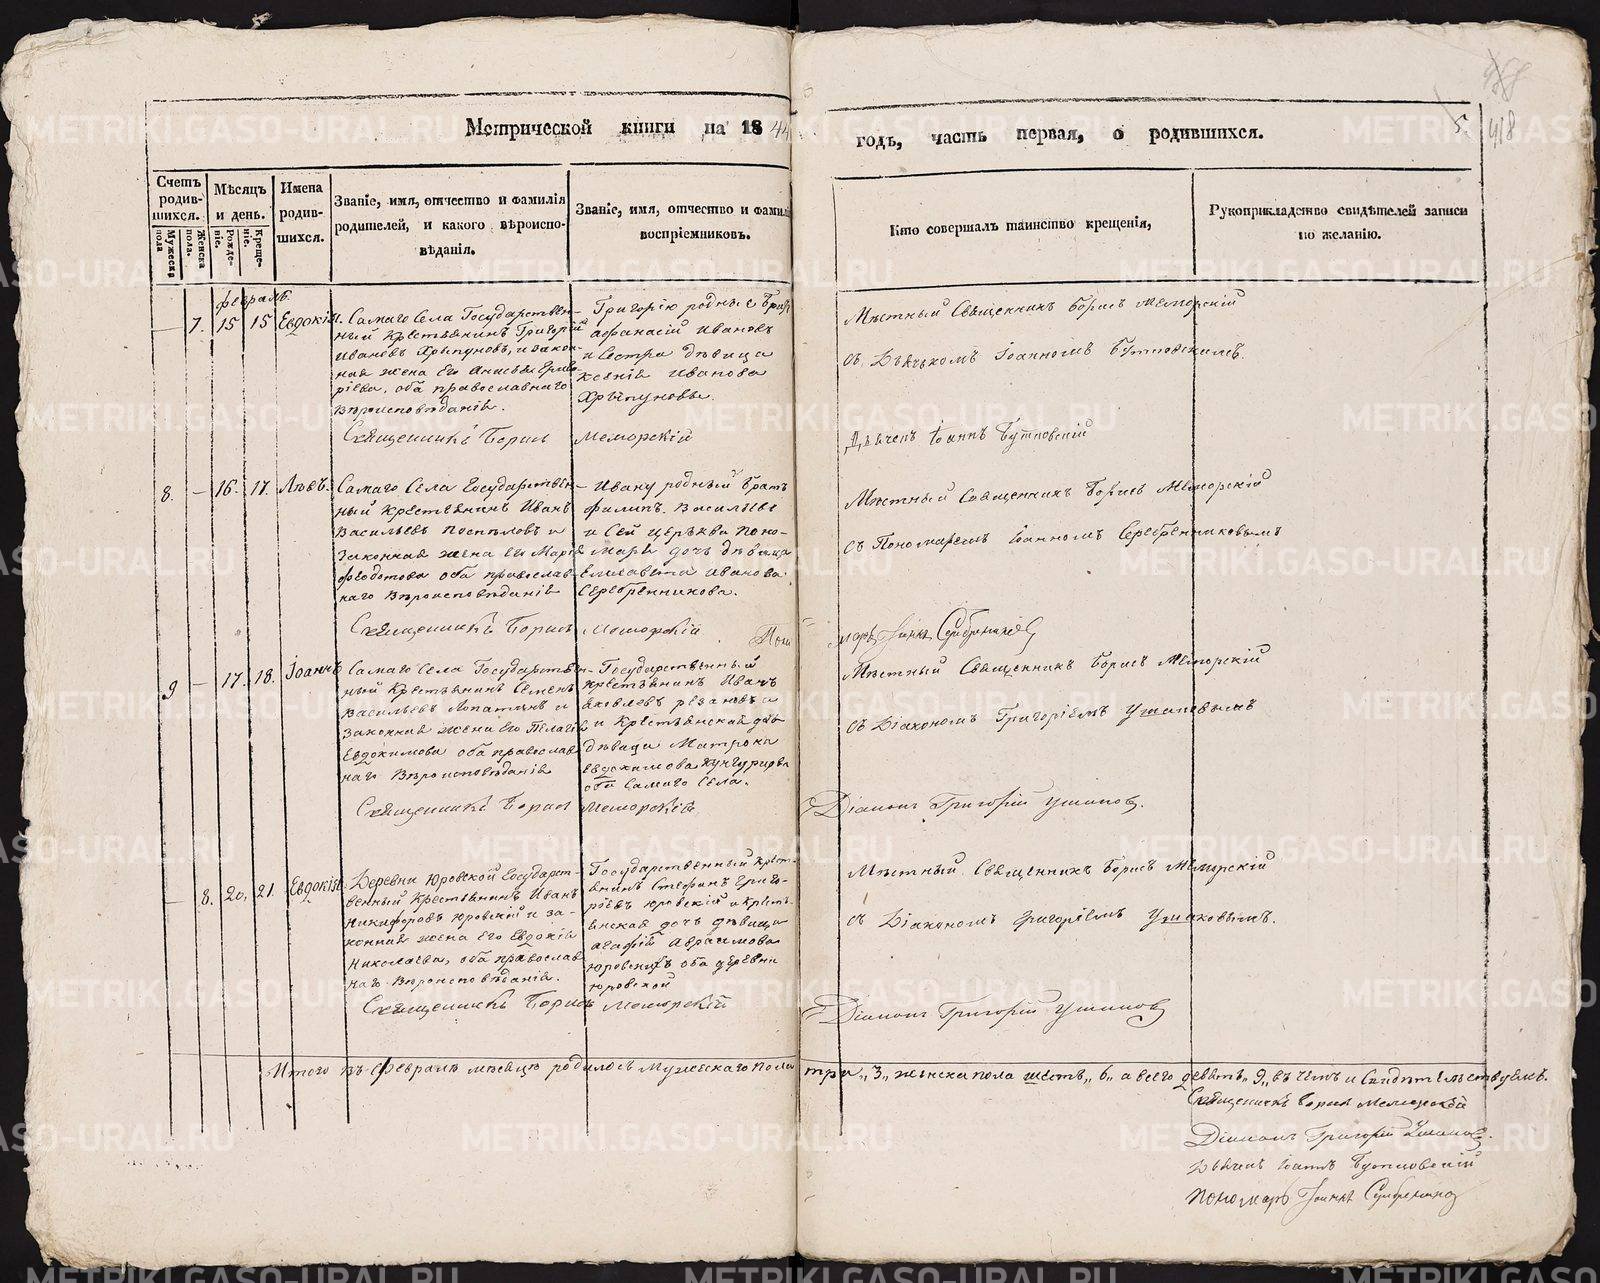 Метрической книги на 1844
годъ, часть первая, о родившихся.
5
418
Счетъ родив-шихся.
Мужеска пола
Женска пола.
Мѣсяцъ и день.
Рожде-ніе.
Креще-ніе.
Имена родив-шихся.
Званіе, имя, отчество и фамилія
родителей, и какого вѣроиспо-
вѣданія.
Званіе, имя, отчество и фамилія
воспріемниковъ.
Кто совершалъ таинство крещенія,
Рукоприкладство свидѣтелей записи
по желанію.
февраль.
7. 15 15 Евдокія.
Самаго Села Государствен-
ный Крестьянинъ Григорій
Ивановъ Хрыпуновъ, и закон-
ная жена Его
оба православнаго
Вѣроисповѣданія.
Григорію родные
Афанасій Ивановъ
и Сестра дѣвица
Ксенія Иванова
Хрыпуновы.
Священникъ Борисъ Меморскій
Мѣстный Священникъ Борисъ Меморскій
съ Дьячкомъ Іоанномъ Бутковскимъ.
Дьячекъ Іоаннъ Бутковскій
8. 16. 17. Левъ.
Самаго Села Государствен-
ный Крестьянинъ Иванъ
Васильевъ Поспѣловъ и
Законная жена Его Марія
Федотова оба православ-
наго Вѣроисповѣданія
Ивану родный братъ
Филипъ Васильевъ
и Сей церкви Поно-
маря дочь дѣвица
Елисавета Иванова
Серебренникова.
Священникъ Борисъ Меморскій
Мѣстный Священникъ Борисъ Меморскій
съ Пономаремъ Іоанномъ Серебренниковымъ
Пономарь Іоаннъ Серебренниковъ
9 17. 18. Іоаннъ
Самаго Села Государствен-
ный Крестьянинъ Семенъ
Васильевъ Лопатинъ и
законная жена Его Пелагія
Евдокимова оба православ
наго Вѣроисповѣданія
Государственный
крестьянинъ Иванъ
Яковлевъ Рѣзановъ
и Крестьянская
дѣвица Матрона
Евдокимова
оба Самаго Села.
Священникъ Борисъ Меморскій
Мѣстный Священникъ Борисъ Меморскій
съ Діакономъ Григоріемъ Ушаковымъ
Діаконъ Григорій Ушаковъ.
8. 20, 21. Евдокія
Деревни Юровской Государст-
венный Крестьянинъ Иванъ
Никифоровъ Юровскій и за-
конная жена Его Евдокія
Николаева, оба православ
наго Вѣроисповѣданія.
Государственный Крест-
ьянинъ Стефанъ Григо-
рьевъ Юровскій и Кресть-
янская дочь дѣвица
Агафія Авраамова
Юровскихъ оба деревни
Юровской
Священникъ Борисъ Меморскій
Мѣстный Священникъ Борисъ Меморскій
съ Діакономъ Григоріемъ Ушаковымъ.
Діаконъ Григорій Ушаковъ
Итого въ Февралѣ мѣсяцѣ родилось Мужескаго Пола три „3„ женска пола шесть„ 6„ а всего девять„ 9„ въ чемъ и Свидѣтельствуемъ.
Священникъ Борисъ Меморскій
Діаконъ Григорій Ушаковъ.
Дьячекъ Іоаннъ Бутковскій
Пономарь Іоаннъ Серебренниковъ
METRIKI.GASO-URAL.RU